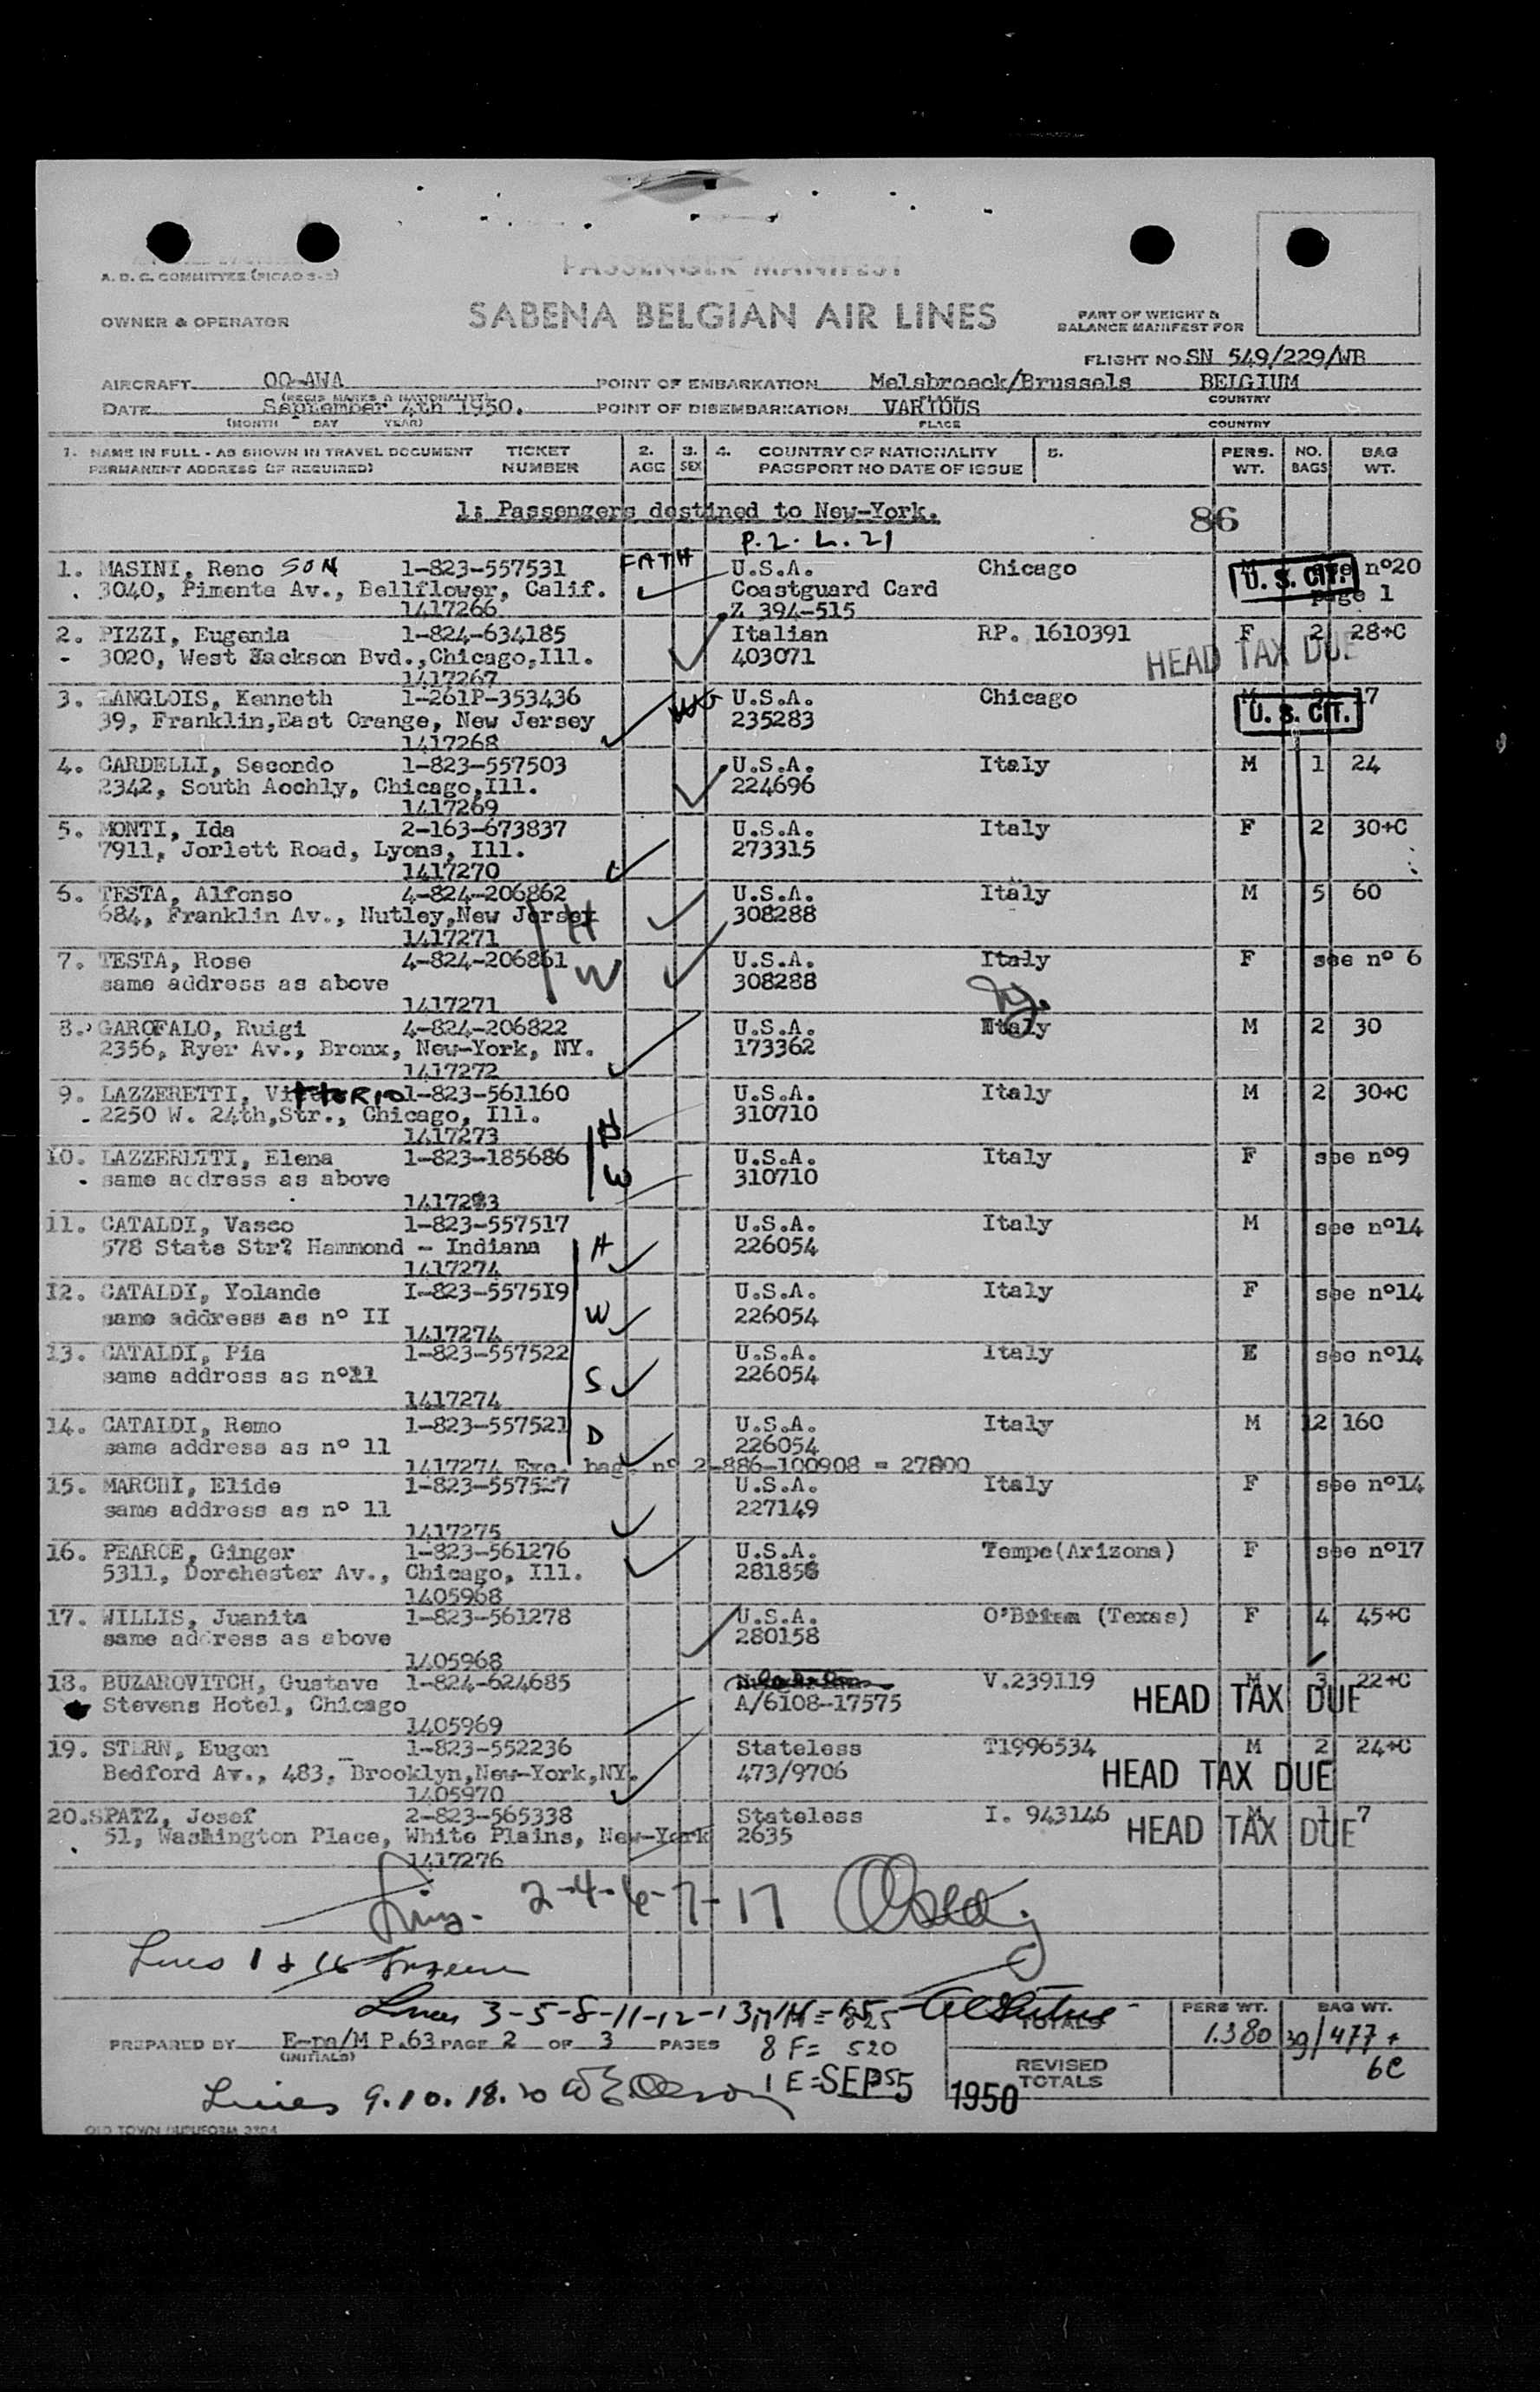 A. D. C. COMMITTEE (PICAO 3-2)
PASSENGER MANIFEST
OWNER & OPERATOR
SABENA BELGIAN AIR LINES
PART OF WEIGHT &
BALANCE MANIFEST FOR
FLIGHT NO. SN 549/229/WB
AIRCRAFT OO-AWA POINT OF EMBARKATION Melsbroeck/Brussels BELGIUM
(REGIS MARKS & NATIONALITY) PLACE COUNTRY
DATE September 4th 1950. POINT OF DISEMBARKATION VARIOUS
(MONTH DAY YEAR) PLACE COUNTRY
1. NAME IN FULL - AS SHOWN IN TRAVEL DOCUMENT TICKET 2. 3. 4. COUNTRY OF NATIONALITY 5. PERS. NO. BAG
PERMANENT ADDRESS (IF REQUIRED) NUMBER AGE SEX PASSPORT NO DATE OF ISSUE WT. BAGS WT.
1: Passengers destined to New-York. 86
P.2. L.21
1. MASINI, Reno SON 1-823-557531 FATH U.S.A. Chicago M see nº20
3040, Pimenta Av., Bellflower, Calif. Coastguard Card U. S. CIT. page 1
1417266 Z 394-515
2. PIZZI, Eugenia 1-824-634185 Italian RP. 1610391 F 2 28+C
3020, West Jackson Bvd.,Chicago,Ill. 403071 HEAD TAX DUE
1417267
3. LANGLOIS, Kenneth 1-261P-353436 U.S.A. Chicago M 17
39, Franklin,East Orange, New Jersey 235283 U. S. CIT.
1417268
4. CARDELLI, Secondo 1-823-557503 U.S.A. Italy M 1 24
2342, South Aochly, Chicago,Ill. 224696
1417269
5. MONTI, Ida 2-163-673837 U.S.A. Italy F 2 30+C
7911, Jorlett Road, Lyons, Ill. 273315
1417270
6. TESTA, Alfonso 4-824-206862 U.S.A. Italy M 5 60
684, Franklin Av., Nutley,New Jersey H 308288
1417271
7. TESTA, Rose 4-824-206861 W U.S.A. Italy F see nº 6
same address as above 308288
1417271
8. GAROFALO, Ruigi 4-824-206822 U.S.A. Italy M 2 30
2356, Ryer Av., Bronx, New-York, NY. 173362
1417272
9. LAZZERETTI, VitTORIO 1-823-561160 U.S.A. Italy M 2 30+C
2250 W. 24th,Str., Chicago, Ill. 310710
1417273 H
10. LAZZERETTI, Elena 1-823-185686 W U.S.A. Italy F see nº9
same address as above 310710
1417273
11. CATALDI, Vasco 1-823-557517 U.S.A. Italy M see nº14
578 State Str? Hammond - Indiana H 226054
1417274
12. CATALDI, Yolande I-823-557519 U.S.A. Italy F see nº14
same address as nº II W 226054
1417274
13. CATALDI, Pia 1-823-557522 U.S.A. Italy E see nº14
same address as nº11 S 226054
1417274
14. CATALDI, Remo 1-823-557521 U.S.A. Italy M 12 160
same address as nº 11 D 226054
1417274 Exc. bag. nº 2-886-100908 = 27800
15. MARCHI, Elide 1-823-557527 U.S.A. Italy F see nº14
same address as nº 11 227149
1417275
16. PEARCE, Ginger 1-823-561276 U.S.A. Tempe(Arizona) F see nº17
5311, Dorchester Av., Chicago, Ill. 281856
1405968
17. WILLIS, Juanita 1-823-561278 U.S.A. (Texas) F 4 45+C
same address as above 280158
1405968
18. BUZAROVITCH, Gustave 1-824-624685 V.239119 M 3 22+C
Stevens Hotel, Chicago A/6108-17575 HEAD TAX DUE
1405969
19. STERN, Eugen 1-823-552236 Stateless T1996534 M 2 24+C
Bedford Av., 483, Brooklyn,New-York,NY. 473/9706 HEAD TAX DUE
1405970
20. SPATZ, Josef 2-823-565338 Stateless I. 943146 M 1 7
51, Washington Place, White Plains, New-York 2635 HEAD TAX DUE
1417276
2-4-6-7-17
Lines 1 & 16
Lines 3-5-8-11-12-13
TOTALS PERS WT. 1.380 BAG WT. 39/477+
6C
PREPARED BY E-pa/M P.63 PAGE 2 OF 3 PAGES
(INITIALS)
8 F= 520
REVISED
TOTALS
Lines 9.10.18.20 1 E= SEP 5 1950